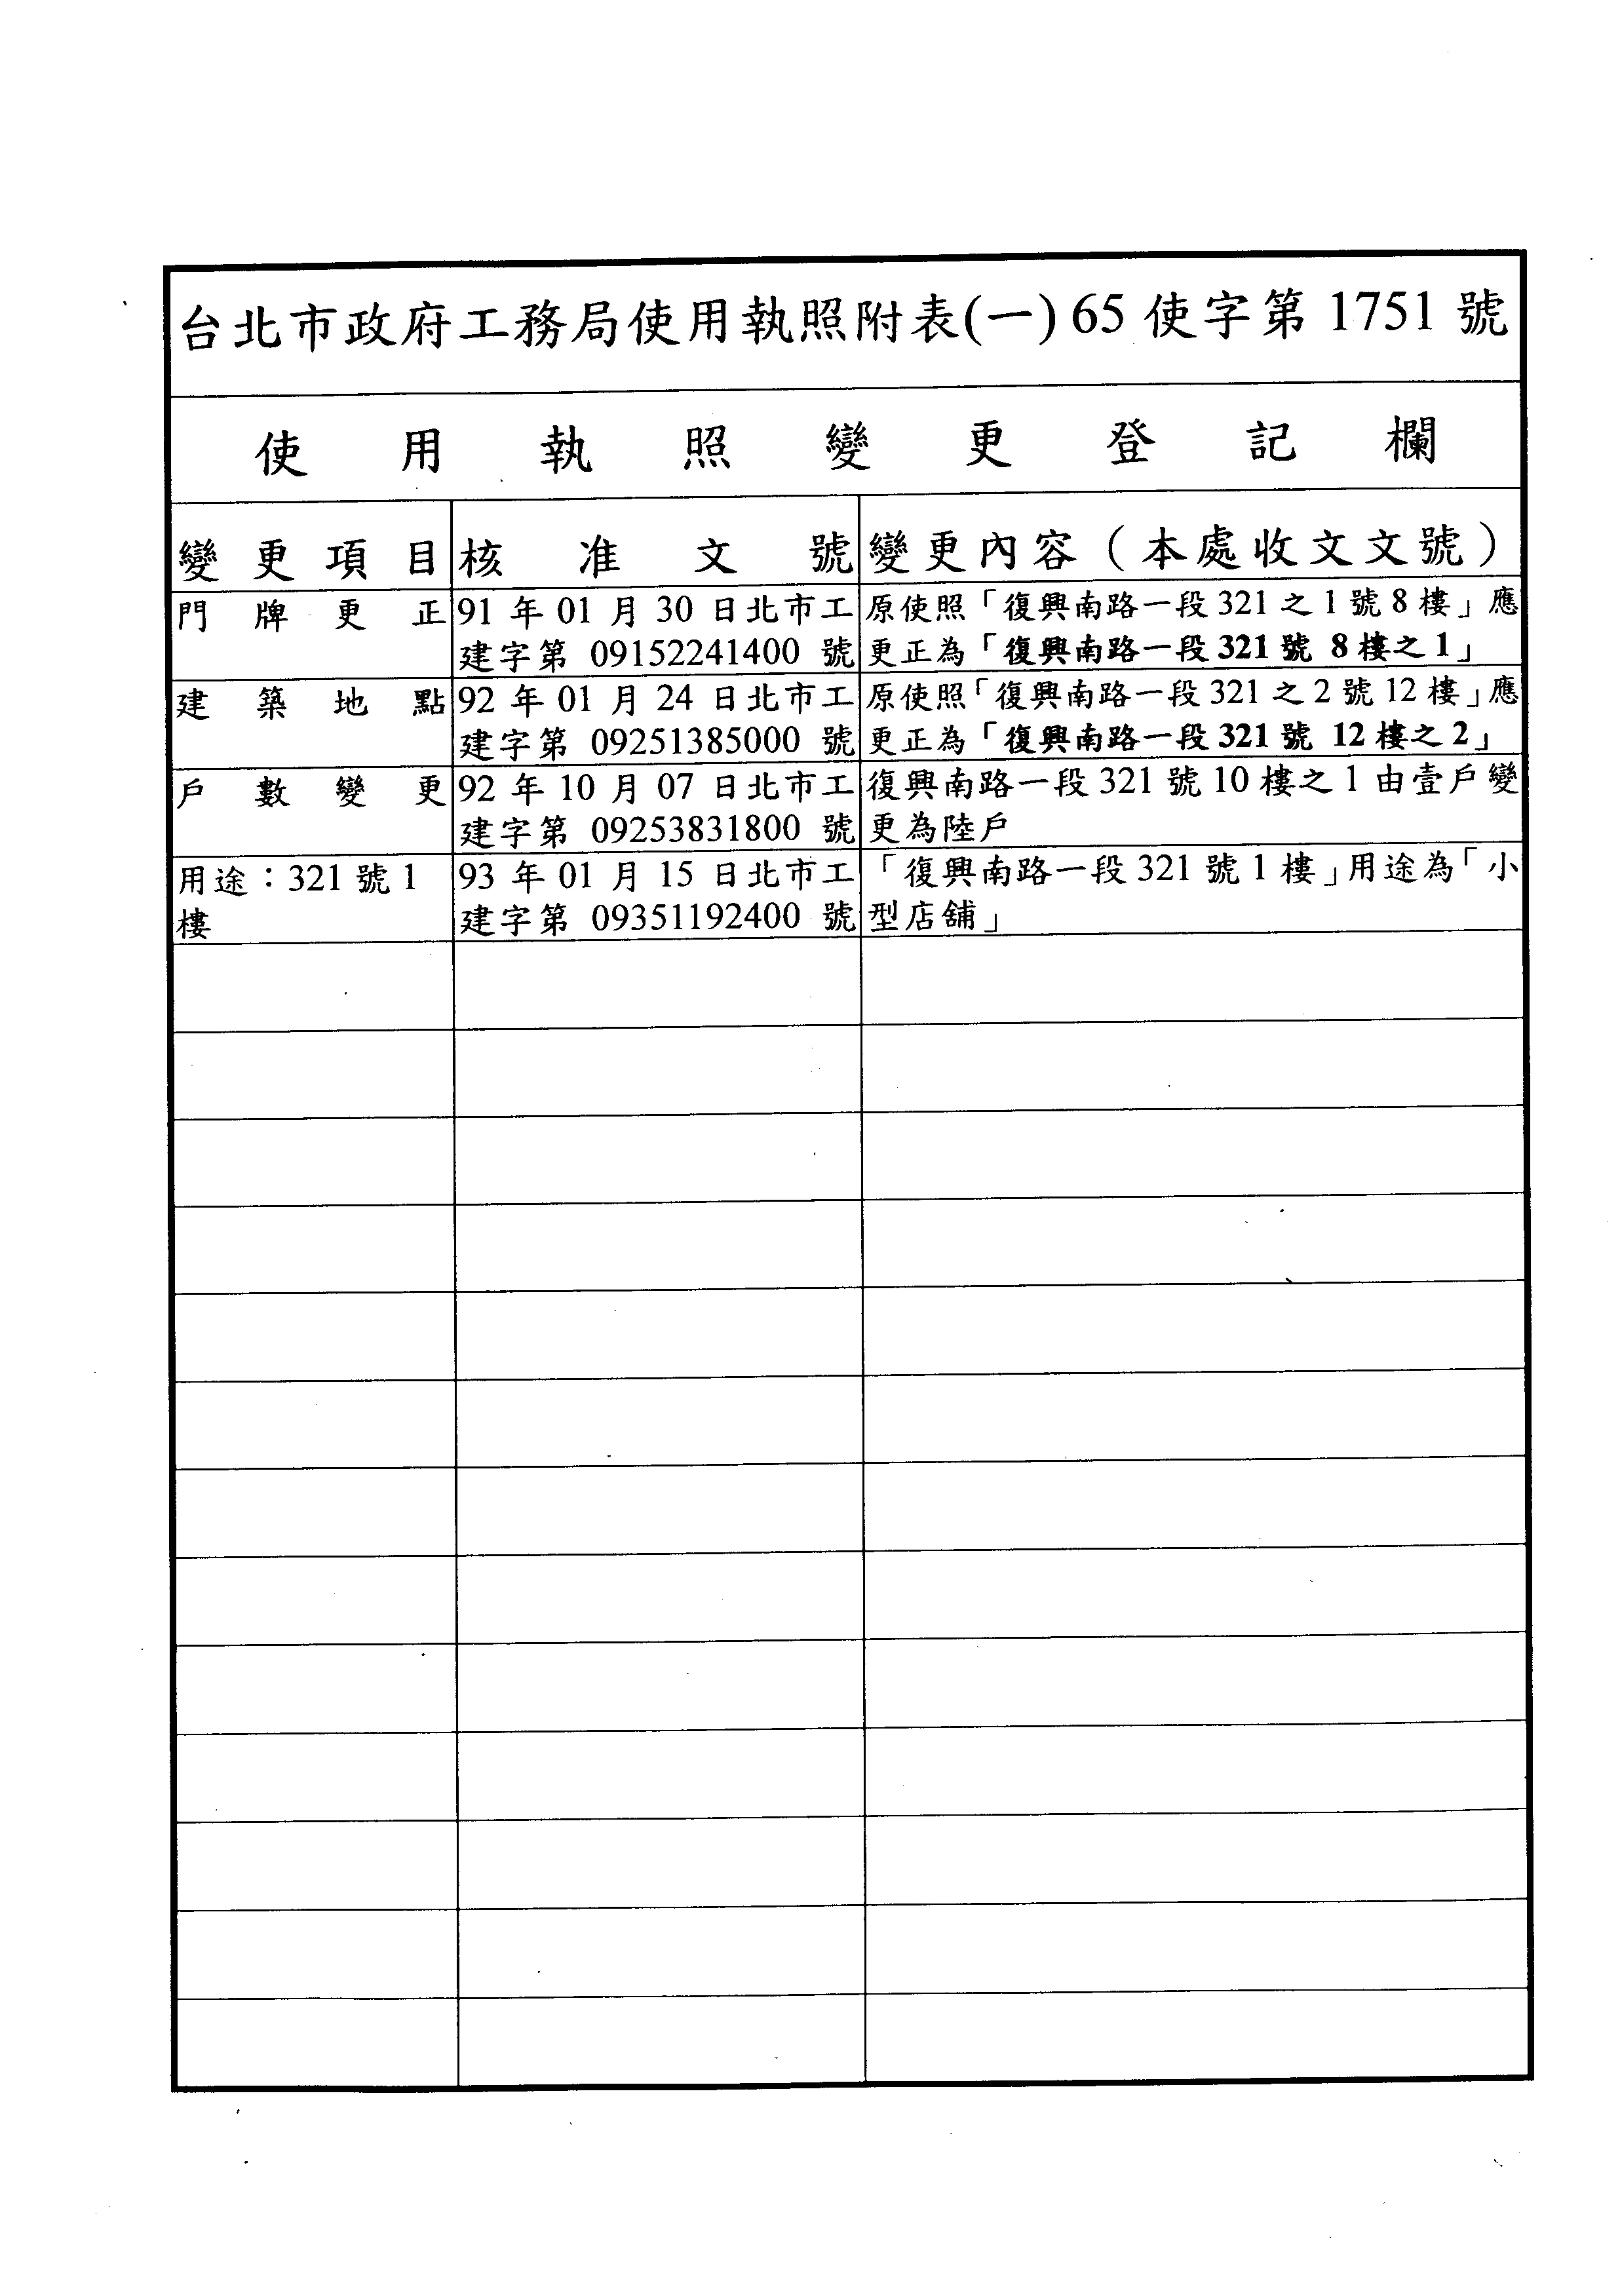 台北市政府工務局使用執照附表(一) 65 使字第 1751 號
使用執照變更登記欄
變更項目 核准文號 變更內容(本處收文文號)
門牌更正 91 年 01 月 30 日北市工 原使照「復興南路一段 321 之 1 號 8 樓」應
建字第 09152241400 號 更正為「復興南路一段 321 號 8 樓之 1」
建築地點 92 年 01 月 24 日北市工 原使照「復興南路一段 321 之 2 號 12 樓」應
建字第 09251385000 號 更正為「復興南路一段 321 號 12 樓之 2」
戶數變更 92 年 10 月 07 日北市工 復興南路一段 321 號 10 樓之 1 由壹戶變
建字第 09253831800 號 更為陸戶
用途：321 號 1 93 年 01 月 15 日北市工 「復興南路一段 321 號 1 樓」用途為「小
樓 建字第 09351192400 號 型店舖」